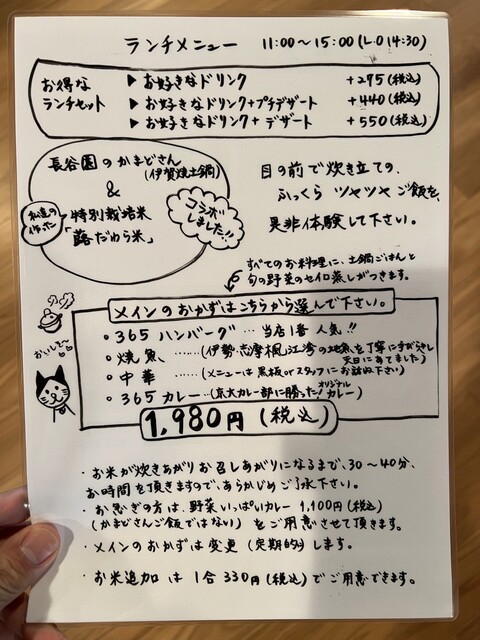 ランチメニュー 11:00～15:00(L.O 14:30)
お得な
ランチセット
▶ お好きなドリンク +275(税込)
▶ お好きなドリンク+プチデザート +440(税込)
▶ お好きなドリンク+デザート +550(税込)
長谷園のかまどさん
(伊賀焼土鍋)
&
私達の
作った
特別栽培米
「蕗だわら米」
コラボ
しました!!
目の前で炊き立ての、
ふっくら ツヤツヤご飯を、
是非体験して下さい。
すべてのお料理に、土鍋ごはんと
旬の野菜のセイロ蒸しがつきます。
メインのおかずはこちらから選んで下さい。
・365 ハンバーグ … 当店1番人気!!
・焼魚 ……(伊勢・志摩 楓江湾の地魚を丁寧に手びらきし
天日にあてました)
・中華 ……(メニューは黒板orスタッフにお訪ね下さい)
・365カレー …(京大カレー部に勝った!オリジナルカレー)
おいしそ〜
1,980円(税込)
・お米が炊きあがりお召しあがりになるまで、30～40分、
お時間を頂きますので、あらかじめご了承下さい。
・お急ぎの方は、野菜いっぱいカレー 1,100円(税込)
(かまどさんご飯ではない) をご用意させて頂きます。
・メインのおかずは変更(定期的)します。
・お米追加は1合330円(税込)でご用意できます。